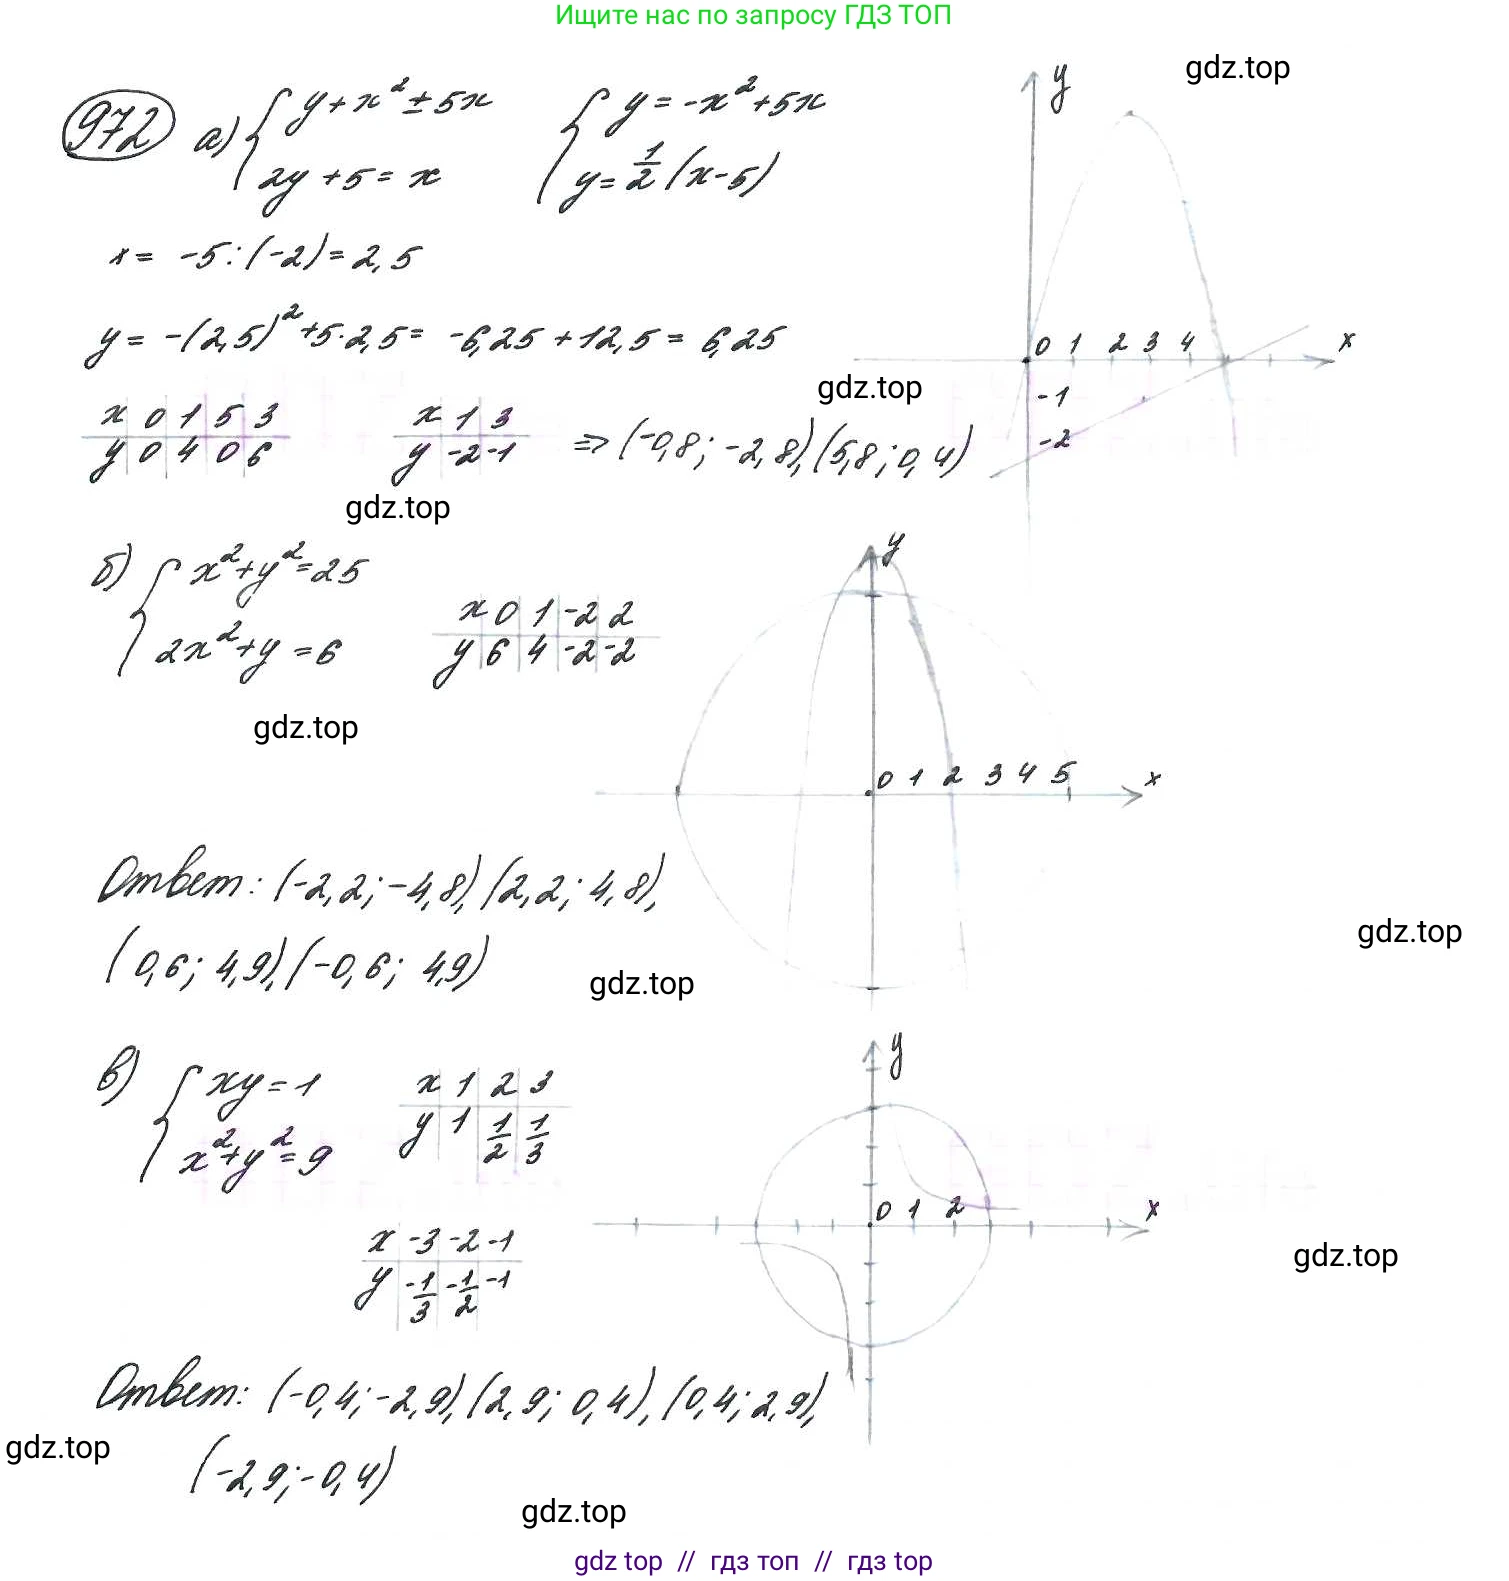 Ищите нас по запросу ГДЗ ТОП
gdz.top
972 а) { y + x² ± 5x { y = -x² + 5x
2y + 5 = x y = 1/2 (x - 5)
x = -5 : (-2) = 2,5
y = -(2,5)² + 5·2,5 = -6,25 + 12,5 = 6,25
y
0 1 2 3 4 x
-1
-2
gdz.top
x 0 1 5 3 x 1 3
y 0 4 0 6 y -2 -1 => (-0,8; -2,8), (5,8; 0,4)
gdz.top
б) { x² + y² = 25
2x² + y = 6
x 0 1 -2 2
y 6 4 -2 -2
y
0 1 2 3 4 5 x
gdz.top
Ответ: (-2,2; -4,8), (2,2; 4,8),
(0,6; 4,9), (-0,6; 4,9)
gdz.top
gdz.top
в) { xy = 1
x² + y² = 9
x 1 2 3
y 1 1/2 1/3
x -3 -2 -1
y -1/3 -1/2 -1
y
0 1 2 x
gdz.top
Ответ: (-0,4; -2,9), (2,9; 0,4), (0,4; 2,9),
(-2,9; -0,4)
gdz.top
gdz.top
gdz top // гдз топ // гдз top